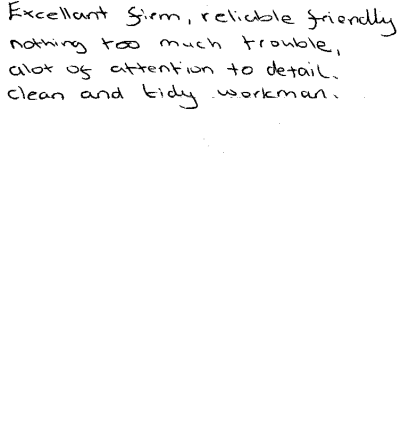 Excellant firm, reliable friendly
nothing too much trouble,
alot of attention to detail.
clean and tidy workman.